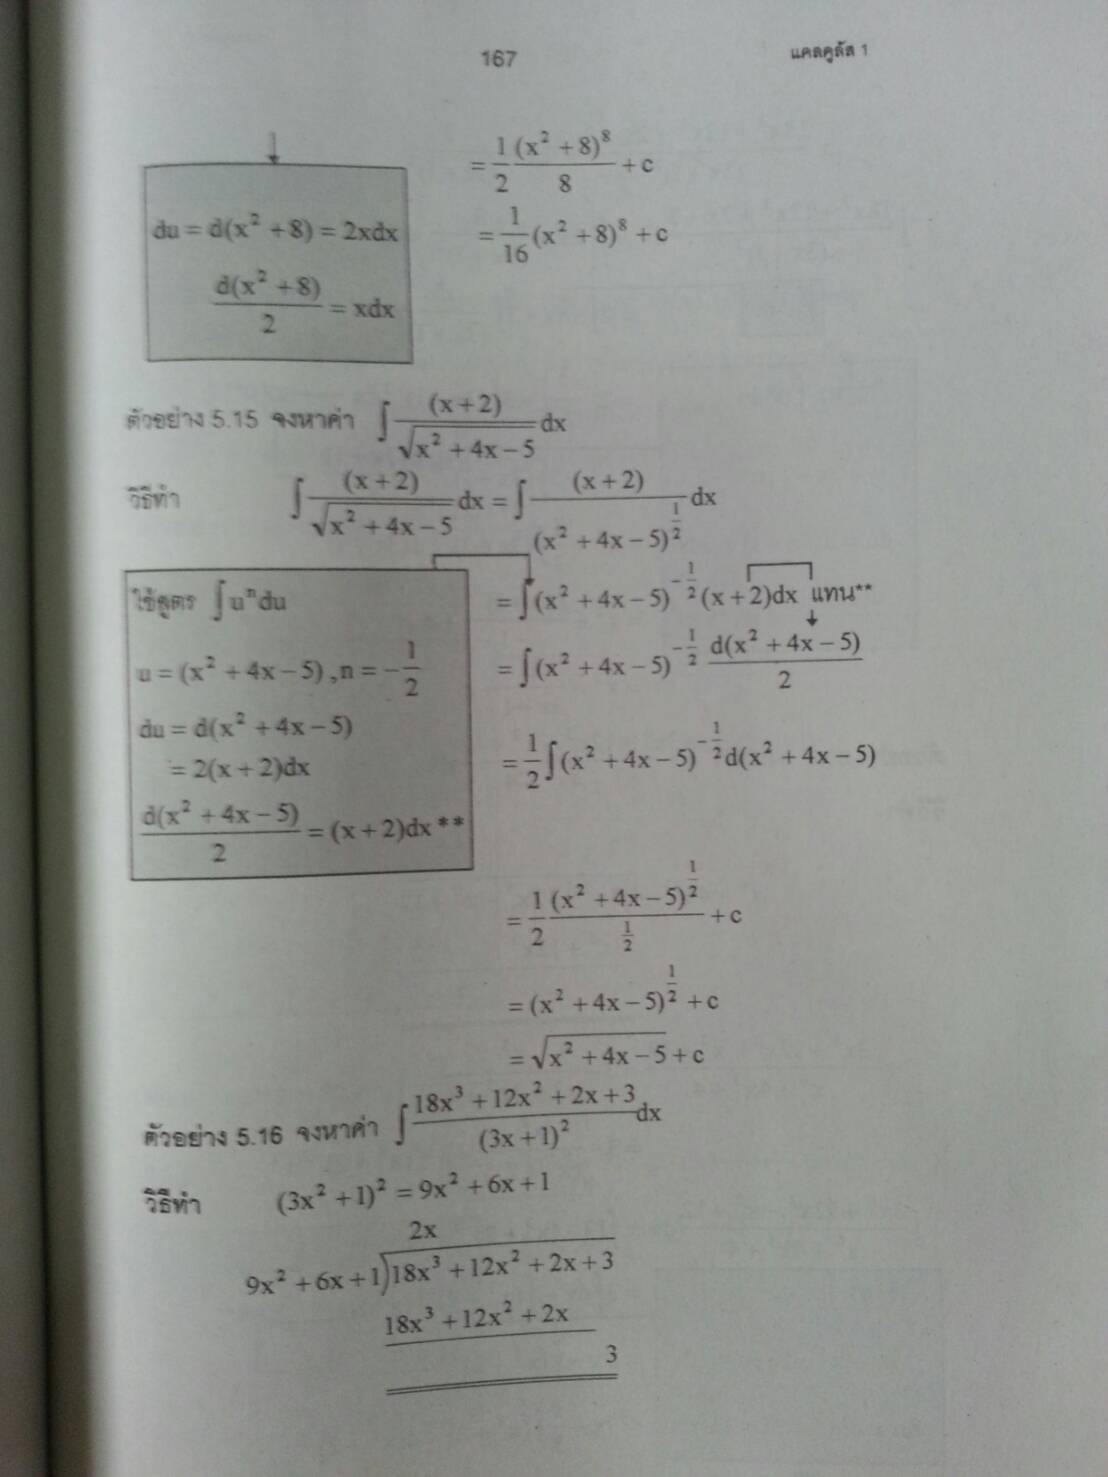 167 แคลคูลัส 1
= 1/2 (x² + 8)⁸/8 + c
du = d(x² + 8) = 2xdx
= 1/16 (x² + 8)⁸ + c
d(x² + 8)/2 = xdx
ตัวอย่าง 5.15 จงหาค่า ∫ (x + 2)/√(x² + 4x − 5) dx
วิธีทำ ∫ (x + 2)/√(x² + 4x − 5) dx = ∫ (x + 2)/(x² + 4x − 5)^(1/2) dx
ใช้สูตร ∫uⁿdu
u = (x² + 4x − 5) , n = −1/2
du = d(x² + 4x − 5)
= 2(x + 2)dx
d(x² + 4x − 5)/2 = (x + 2)dx **
= ∫(x² + 4x − 5)^(−1/2) (x + 2)dx แทน**
= ∫(x² + 4x − 5)^(−1/2) d(x² + 4x − 5)/2
= 1/2 ∫(x² + 4x − 5)^(−1/2) d(x² + 4x − 5)
= 1/2 (x² + 4x − 5)^(1/2)/(1/2) + c
= (x² + 4x − 5)^(1/2) + c
= √(x² + 4x − 5) + c
ตัวอย่าง 5.16 จงหาค่า ∫ (18x³ + 12x² + 2x + 3)/(3x + 1)² dx
วิธีทำ (3x² + 1)² = 9x² + 6x + 1
2x
9x² + 6x + 1)18x³ + 12x² + 2x + 3
18x³ + 12x² + 2x
3